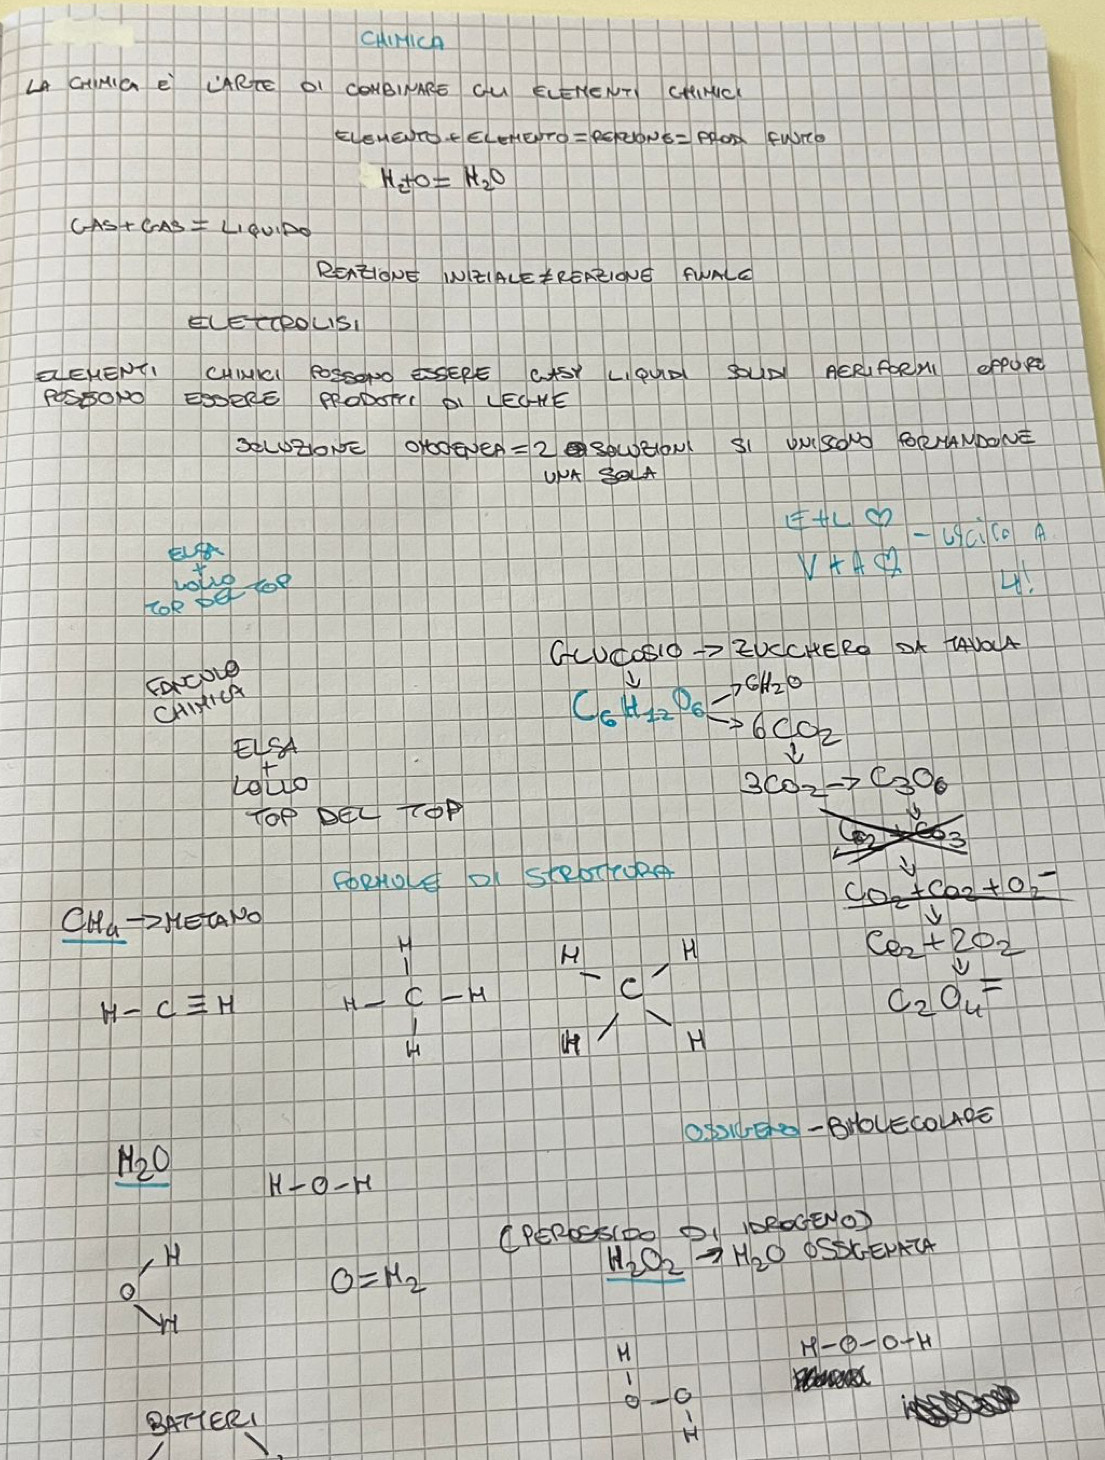 CHIMICA
LA CHIMICA E' L'ARTE DI COMBINARE GLI ELEMENTI CHIMICI
ELEMENTO + ELEMENTO = REAZIONE = PROD FINITO
H2+O= H2O
GAS+GAS = LIQUIDO
REAZIONE INIZIALE ≠ REAZIONE FINALE
ELETTROLISI
ELEMENTI CHIMICI POSSONO ESSERE GASY LIQUIDI SOLIDI AERIFORMI OPPURE
POSSONO ESSERE PRODOTTI DI LEGHE
SOLUZIONE OMOGENEA = 2 SOLUZIONI SI UNISCONO FORMANDONE
UNA SOLA
E+L ♡
V+A ♡
A
4!
ELSA
+
LOLLO
TOP DEL TOP
GLUCOSIO -> ZUCCHERO DA TAVOLA
↓
C6H12O6 -> 6H2O
-> 6CO2
↓
3CO2 -> C3O6
↓
↓
CO2+CO2+O2-
↓
CO2+2O2
↓
C2O4=
FANCULO
CHIMICA
ELSA
+
LOLLO
TOP DEL TOP
FORMULE DI STRUTTURA
CH4 -> METANO
H - C ≡ H
H
|
H - C - H
|
H
H H
C
H H
OSSIGENO - BIMOLECOLARE
H2O
H-O-H
H
O
H
O=H2
(PEROSSIDO DI IDROGENO)
H2O2 -> H2O OSSIGENATA
H
|
O-O
|
H
H-O-O-H
BATTERI